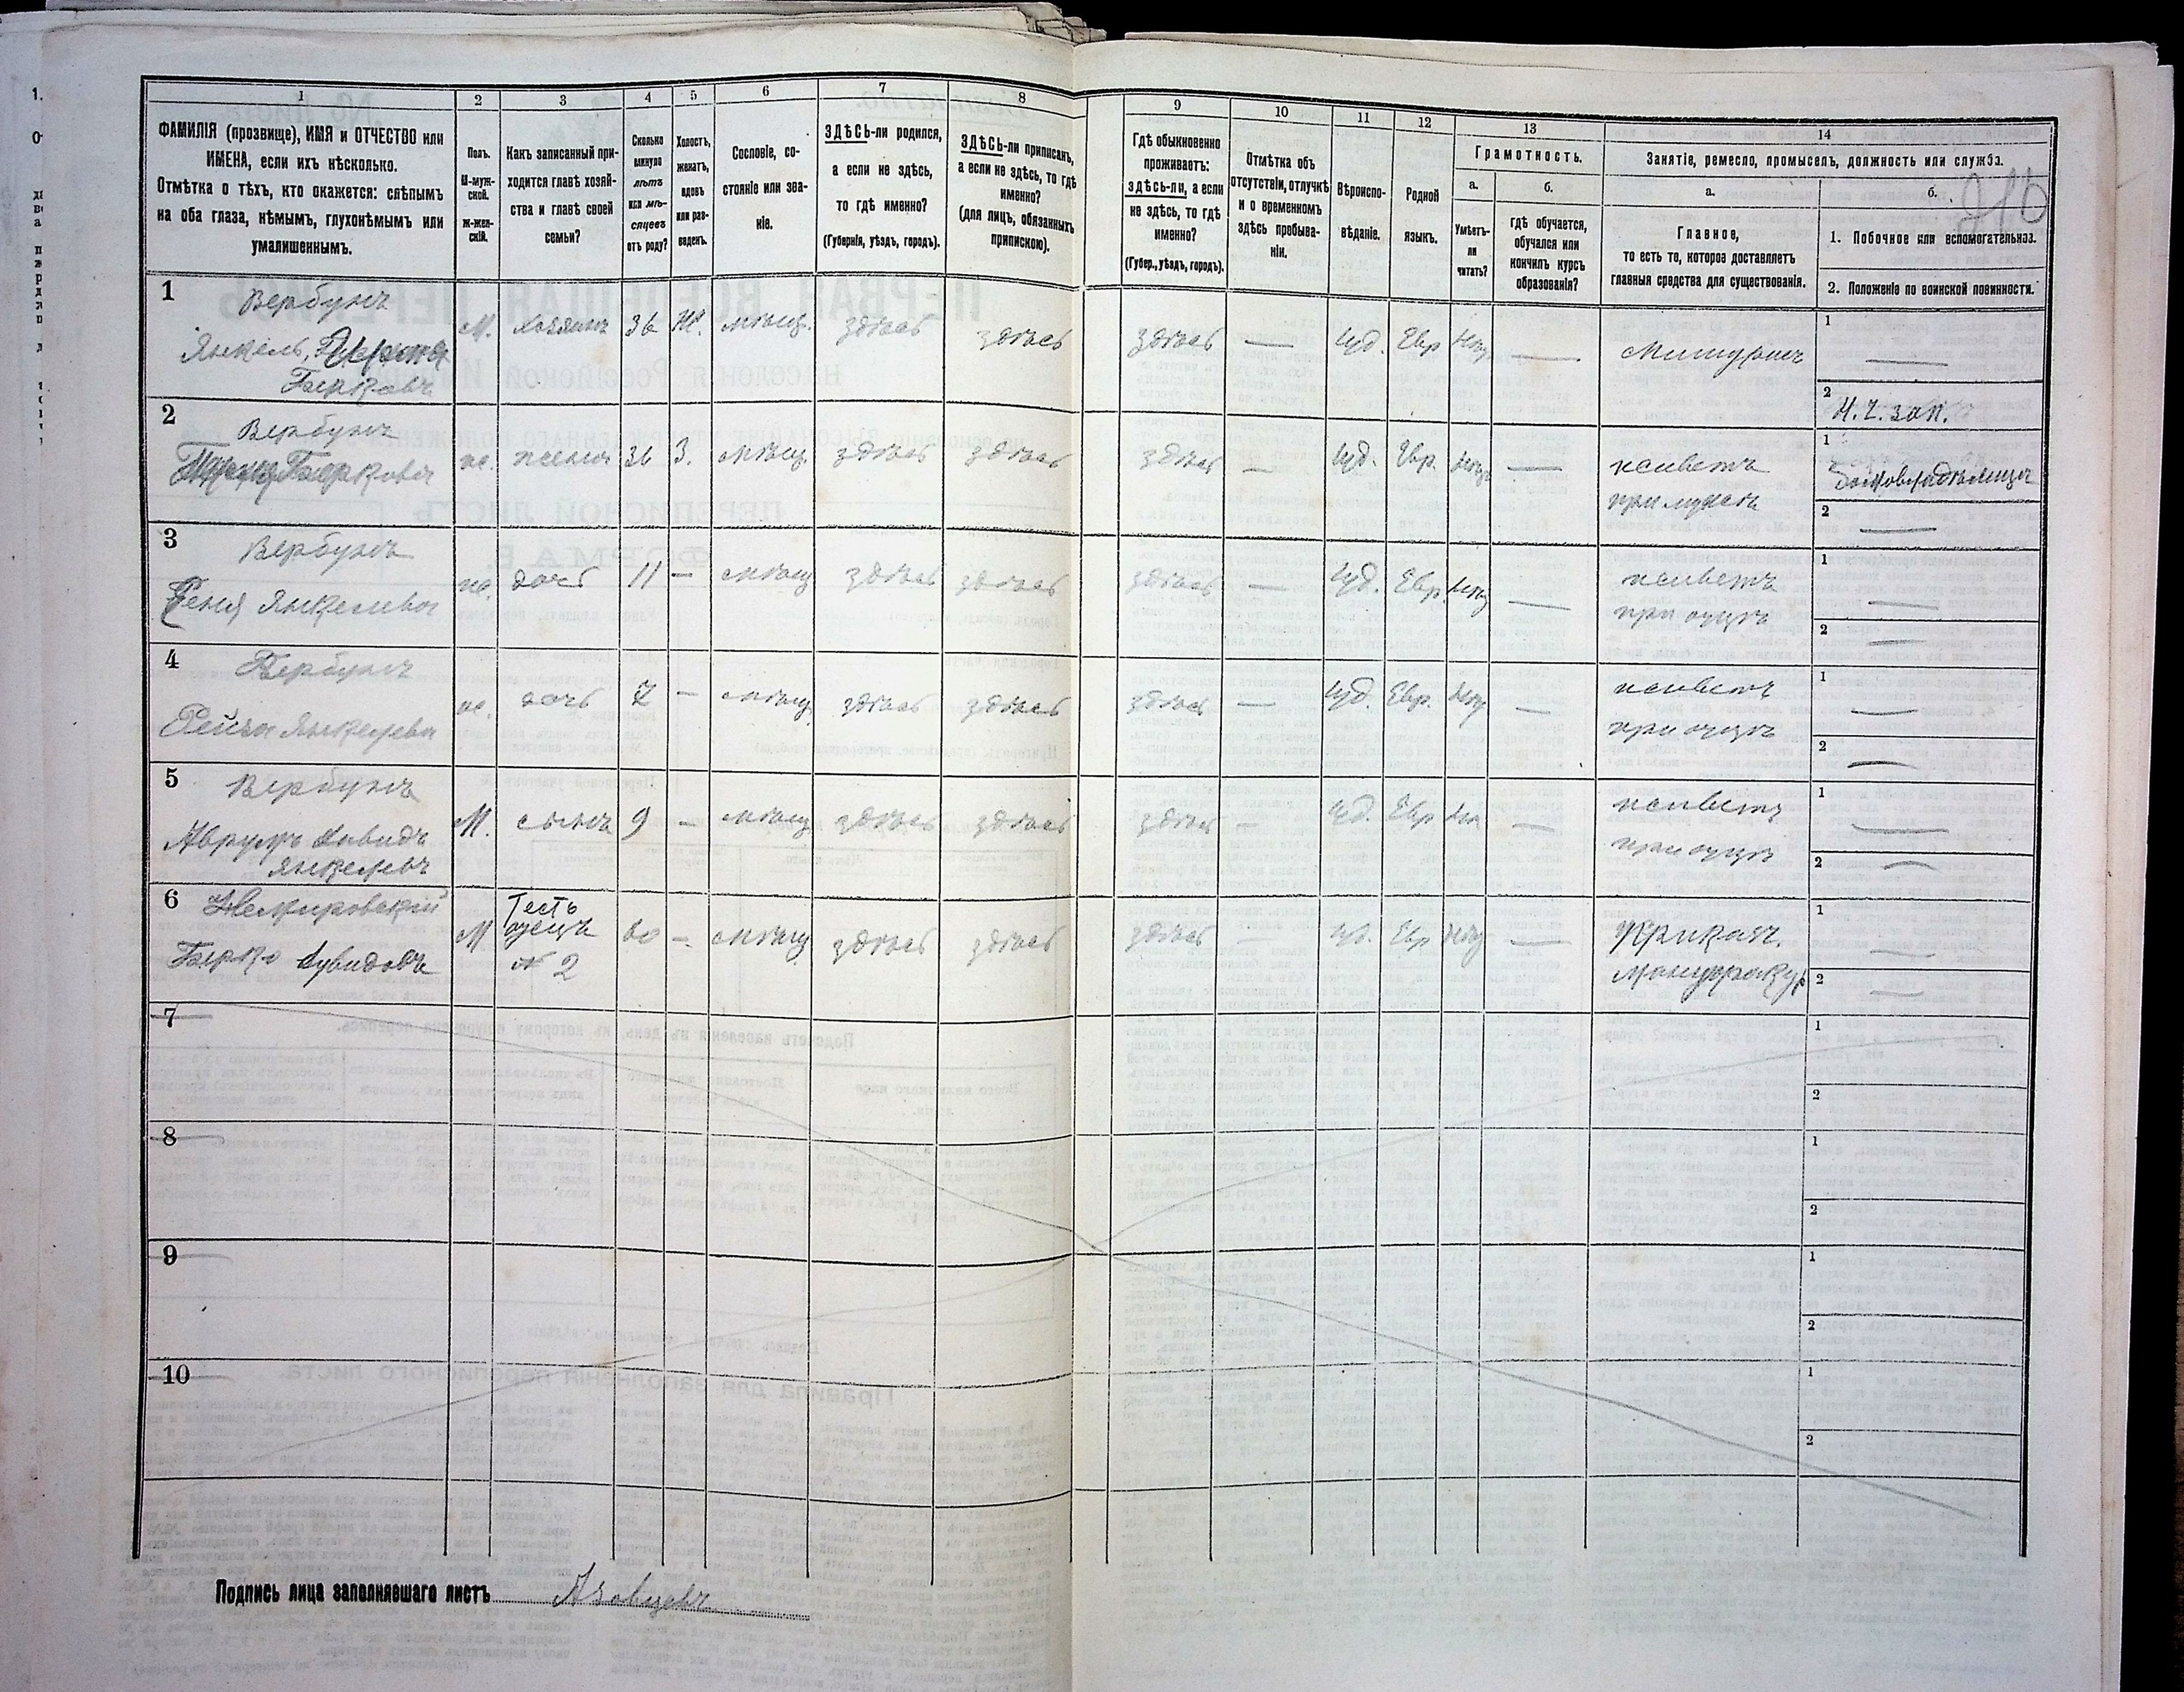 1 2 3 4 5 6 7 8 9 10 11 12 13 14
ФАМИЛІЯ (прозвище), ИМЯ и ОТЧЕСТВО или
ИМЕНА, если ихъ нѣсколько.
Отмѣтка о тѣхъ, кто окажется: слѣпымъ
на оба глаза, нѣмымъ, глухонѣмымъ или
умалишеннымъ.
Полъ.
М-муж-
ской.
Ж-жен-
скій.
Какъ записанный при-
ходится главѣ хозяй-
ства и главѣ своей
семьи?
Сколько
минуло
лѣтъ
или мѣ-
сяцевъ
отъ роду?
Холостъ,
женатъ,
вдовъ
или раз-
веденъ.
Сословіе, со-
стояніе или зва-
ніе.
ЗДѢСЬ-ли родился,
а если не здѣсь,
то гдѣ именно?
(Губернія, уѣздъ, городъ).
ЗДѢСЬ-ли приписанъ,
а если не здѣсь, то гдѣ
именно?
(для лицъ, обязанныхъ
припискою).
Гдѣ обыкновенно
проживаетъ:
здѣсь-ли, а если
не здѣсь, то гдѣ
именно?
(Губер., уѣздъ, городъ).
Отмѣтка объ
отсутствіи, отлучкѣ
и о временномъ
здѣсь пребыва-
ніи.
Вѣроиспо-
вѣданіе.
Родной
языкъ.
Грамотность.
а.
Умѣетъ-
ли
читать?
б.
гдѣ обучается,
обучался или
кончилъ курсъ
образованія?
Занятіе, ремесло, промыселъ, должность или служба.
а.
Главное,
то есть то, которое доставляетъ
главныя средства для существованія.
б.
1. Побочное или вспомогательное.
2. Положеніе по воинской повинности.
1 Вербунъ
Янкель,
Берковъ
М. хозяинъ 36 Ж. мѣщ. здѣсь здѣсь здѣсь — Іуд. Евр нѣт —
1 —
2
2 Вербунъ
Берковна
ж. жена 36 З. мѣщ. здѣсь здѣсь здѣсь — Іуд. Евр. нѣт — живетъ
при мужѣ
1 Домовладѣлица
2 —
3 Вербунъ
Геня Янкелева
ж. дочь 11 — мѣщ здѣсь здѣсь здѣсь — Іуд. Евр. нѣт — живетъ
при отцѣ
1 —
2 —
4 Вербунъ
Рейза Янкелева
ж. дочь 7 — мѣщ. здѣсь здѣсь здѣсь — Іуд. Евр. нѣт — живетъ
при отцѣ
1 —
2 —
5 Вербунъ
Аврумъ Давидъ
Янкелевъ
М. сынъ 9 — мѣщ здѣсь здѣсь здѣсь — Іуд. Евр — живетъ
при отцѣ
1 —
2 —
6 Немировскій
Берко Дувидовъ
М Тесть
отецъ
№ 2
60 — мѣщ здѣсь здѣсь здѣсь — Іуд. Евр нѣт — Приказч.
мануфакту
1 —
2 —
7
1
2
8
1
2
9
1
2
10
1
2
Подпись лица заполнявшаго листъ